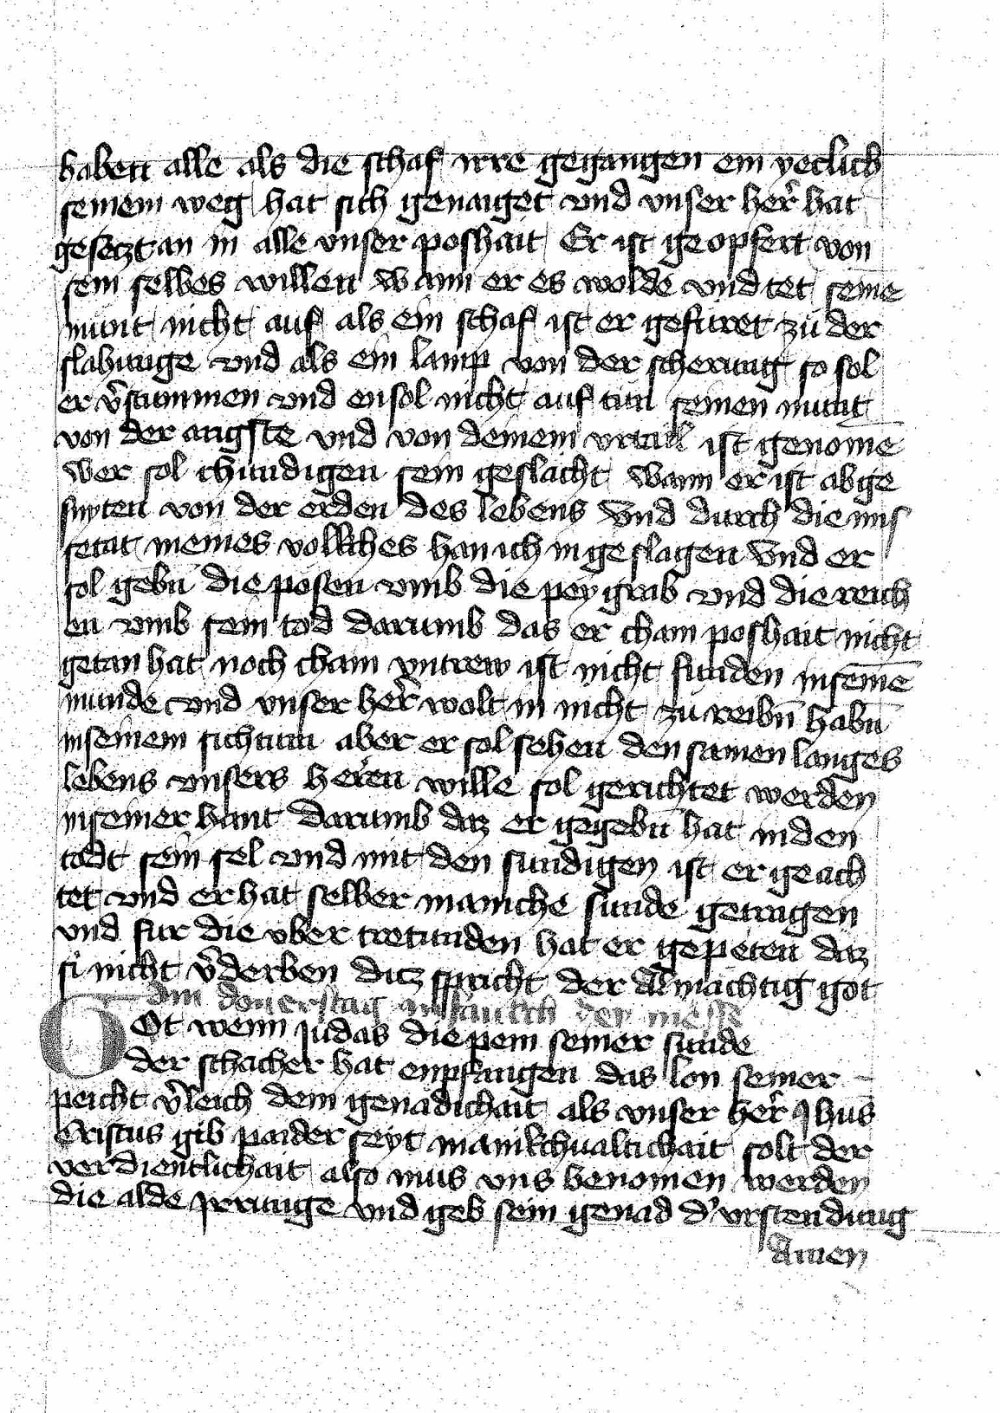 haben alle als die schaf irre gegangen ein yeclich
seinem weg hat sich genaiget vnd vnser her̃ hat
gesetzt an in alle vnser poshait Er ist geopfert von
sein selbes willen wann er es wolde vnd tet seinē
munt nicht auf als ein schaf ist er gefuret zu der
slahunge vnd als ein lamp von der scherung so sol
er v̄stummen vnd ensol nicht auf tun seinen munt
von der angste vnd von deinem vrtail ist genomē
wer sol chundigen sein geslächt wann er ist abge
snyten von der erden des lebens Vnd durch die mis
setat meines volkches han ich in geslagen Vnd er
sol gebn̄ die posen vmb die peygrab vnd die reich
en vmb sein tod darumb das er cham poshait nicht
getan hat noch cham vntrew ist nicht funden in seinē
munde vnd vnser her̃ wolt in nicht zu reibn̄ habn̄
in seinem sichtum aber er sol sehen den samen langes
lebens vnsers heren wille sol gerichtet werden
in seiner hant Darumb daz er gegebn̄ hat in den
todt sein sel vnd mit den sundigen ist er geach
tet vnd er hat selber maniche sunde getragen
vnd fur die vber tretunden hat er gepeten daz
si nicht v̄derben ditz spricht der almächtig got
Am donerstag der mess
Got wenn Judas die pein seiner sunde
der schacher hat enpfangen das lon seiner
peicht v̄leich dem genadichait als vnser her̃ Jhus̄
Cristus gib paider seyt manikchualtichait solt der
verdientlichait also mus vns benomen werden
die alde irrunge vnd geb sein genad d' vrstendung
Amen